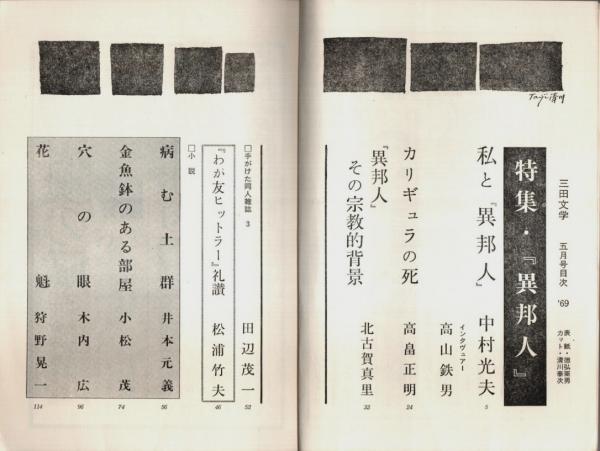 三田文学 五月号目次 '69
表紙・徳弘亜男
カット・清川泰次
特集・『異邦人』
私と『異邦人』 中村光夫 5
インタヴュアー
高山鉄男
カリギュラの死 高畠正明 24
『異邦人』
その宗教的背景 北古賀真里 32
Taiji清川
□手がけた同人雑誌 3 田辺茂一 52
『わが友ヒットラー』礼讃 松浦竹夫 46
□小説
病む土群 井本元義 56
金魚鉢のある部屋 小松茂 74
穴の眼 木内広 96
花魁 狩野晃一 114